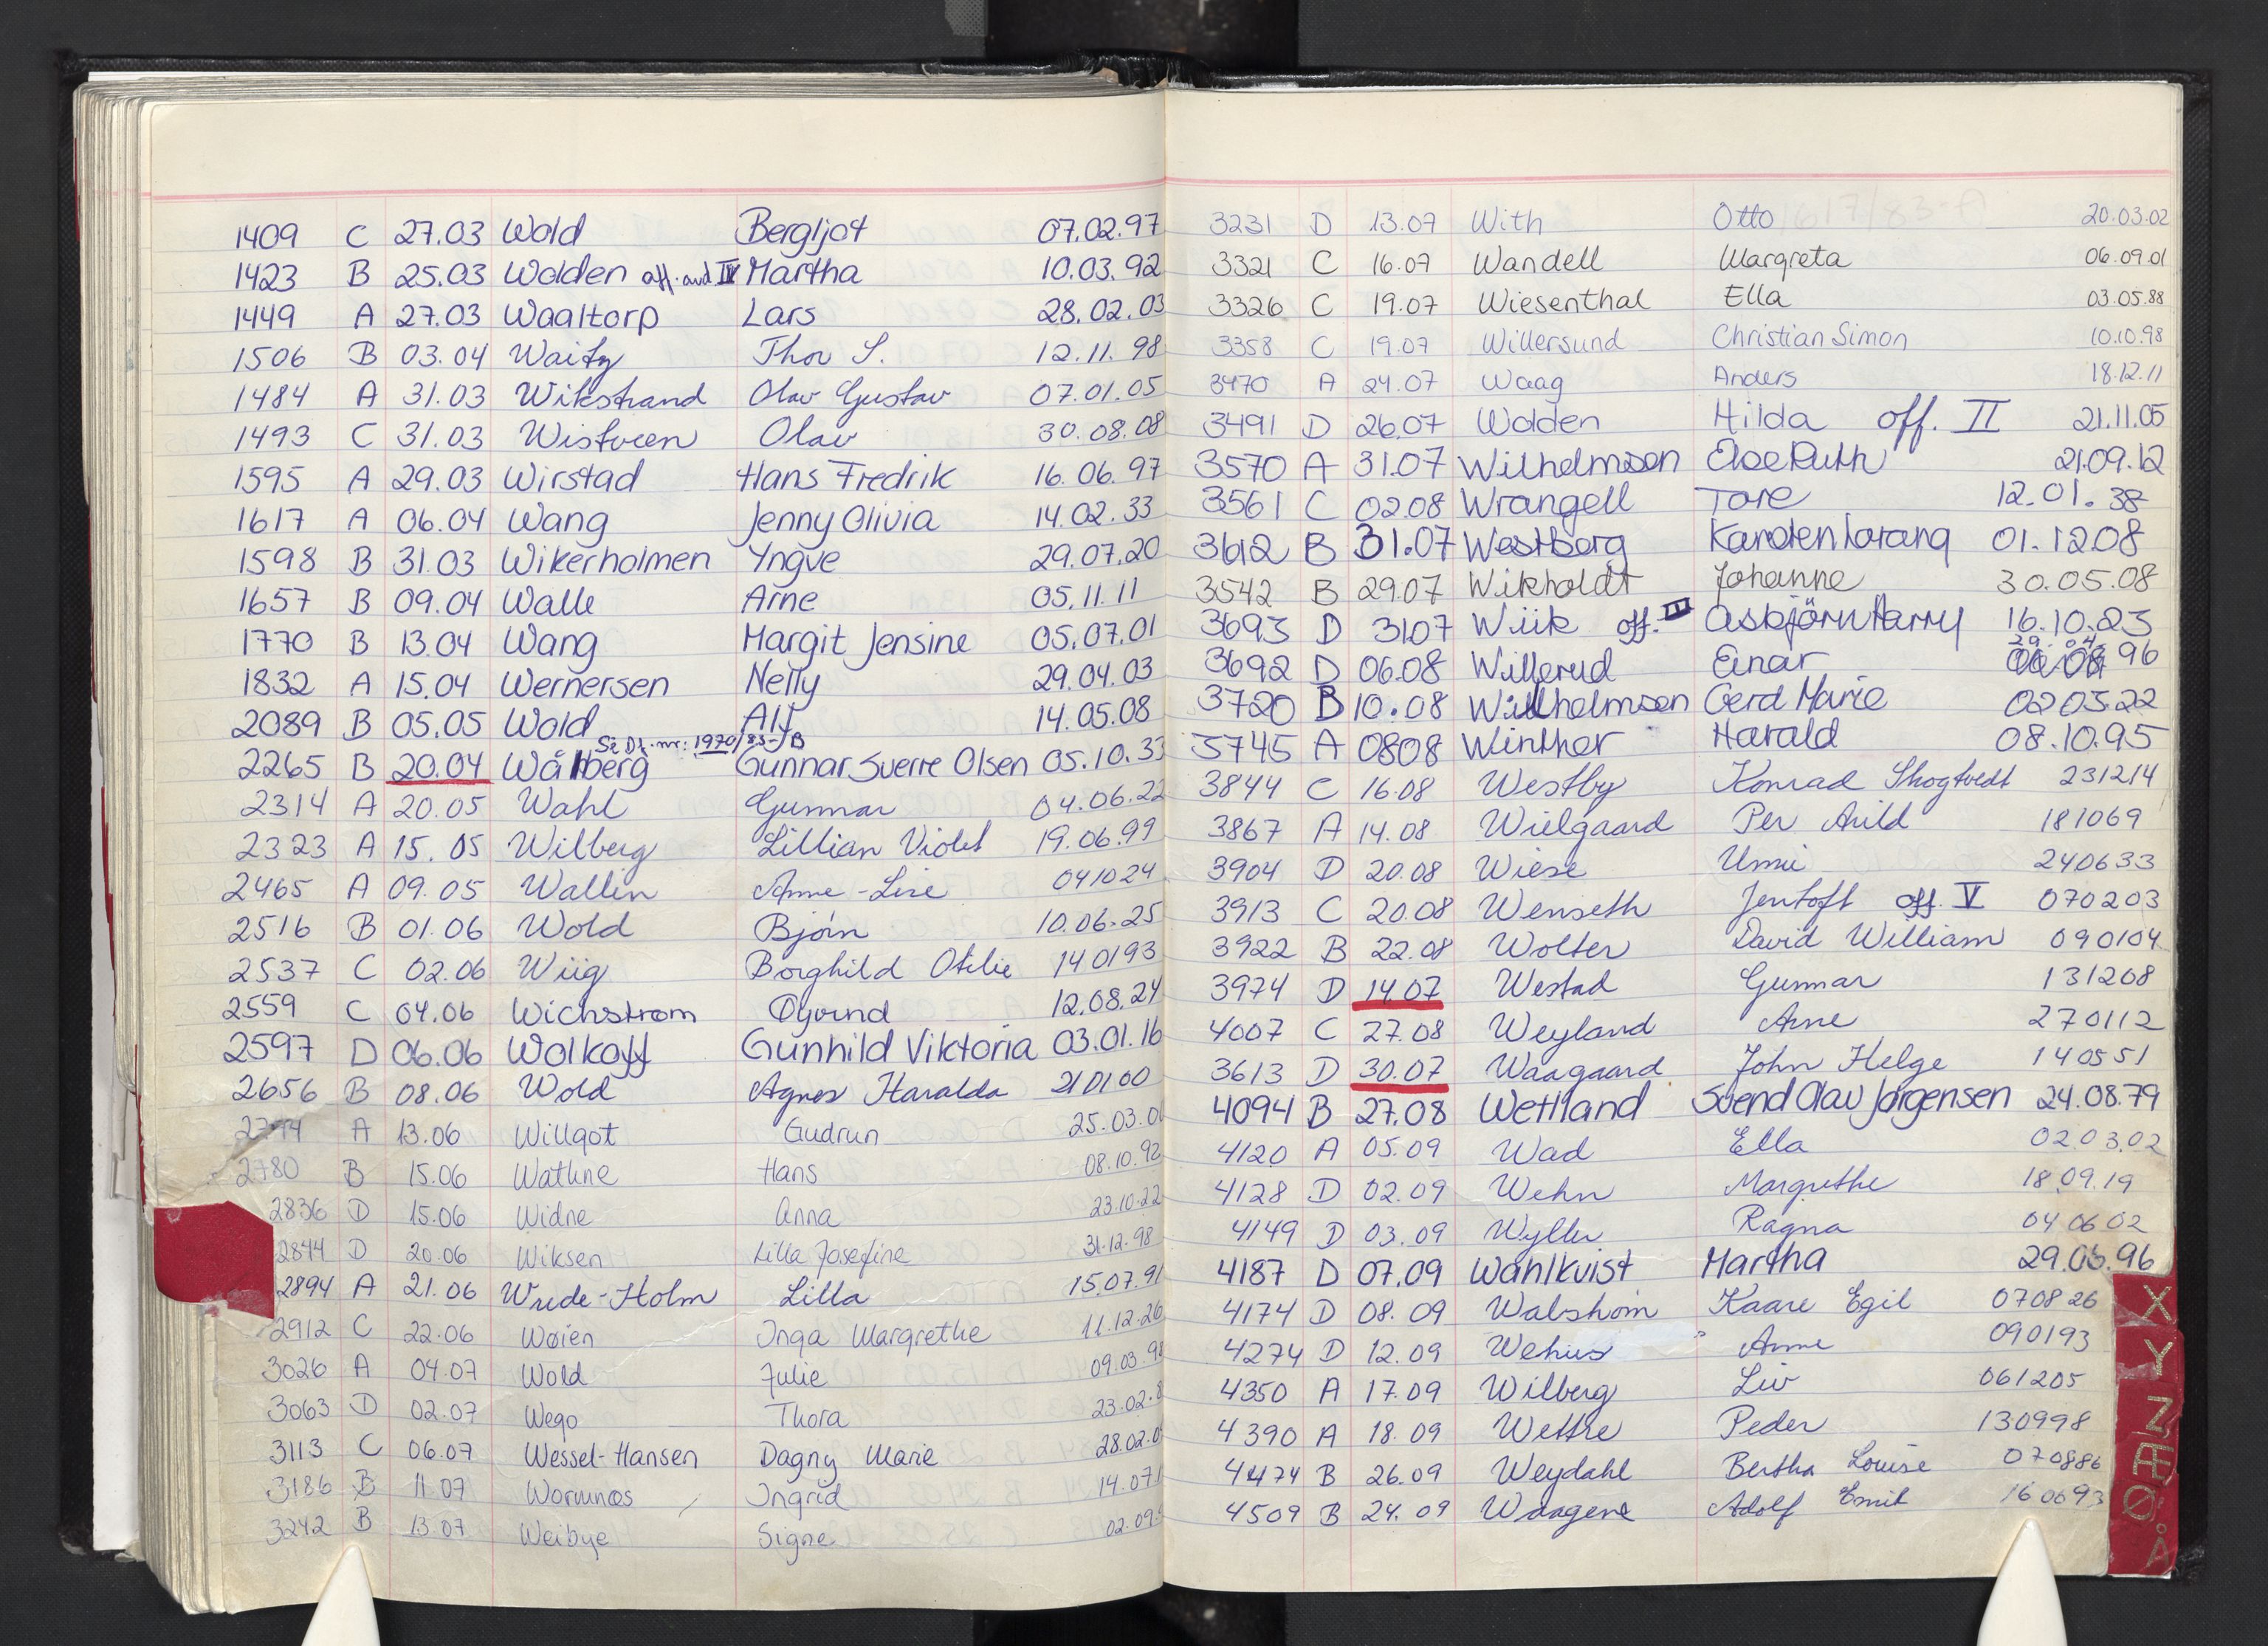 1409 C 27.03 Wold Bergljot 07.02.97
1423 B 25.03 Wolden off. avd. IV Martha 10.03.92
1449 A 27.03 Waaltorp Lars 28.02.03
1506 B 03.04 Waitz Thor S. 12.11.98
1484 A 31.03 Wikstrand Olav Gustav 07.01.05
1493 C 31.03 Wistveen Olav 30.08.08
1595 A 29.03 Wirstad Hans Fredrik 16.06.97
1617 A 06.04 Wang Jenny Olivia 14.02.33
1598 B 31.03 Wikerholmen Yngve 29.07.20
1657 B 09.04 Walle Arne 05.11.11
1770 B 13.04 Wang Margit Jensine 05.07.01
1832 A 15.04 Wernersen Nelly 29.04.03
2089 B 05.05 Wold Alf 14.05.08
Se Df. nr: 1970/83-B
2265 B 20.04 Wålberg Gunnar Sverre Olsen 05.10.33
2314 A 20.05 Wahl Gunnar 04.06.22
2323 A 15.05 Wilberg Lillian Violet 19.06.99
2465 A 09.05 Wallin Anne-Lise 041024
2516 B 01.06 Wold Bjørn 10.06.25
2537 C 02.06 Wiig Borghild Otilie 140193
2559 C 04.06 Wichstrøm Øyvind 12.08.24
2597 D 06.06 Wolkoff Gunhild Viktoria 03.01.16
2656 B 08.06 Wold Agnes Haralda 210100
A 13.06 Willgot Gudrun 25.03.0
2780 B 15.06 Wathne Hans 08.10.92
2836 D 15.06 Widne Anna 23.10.22
2844 D 20.06 Wiksen Lilla Josefine 31.12.98
2894 A 21.06 Wrede-Holm Lilla 15.07.91
2912 C 22.06 Wøien Inga Margrethe 11.12.26
3026 A 04.07 Wold Julie 09.03.98
3063 D 02.07 Wego Thora 23.02.8
3113 C 06.07 Wessel-Hansen Dagny Marie 28.02.0
3186 B 11.07 Wormnæs Ingrid 14.07.
3242 B 13.07 Weibye Signe 02.09.
3231 D 13.07 With Otto 20.03.02
3321 C 16.07 Wandell Margreta 06.09.01
3326 C 19.07 Wiesenthal Ella 03.05.88
3358 C 19.07 Willersund Christian Simon 10.10.98
3470 A 24.07 Waag Anders 18.12.11
3491 D 26.07 Wolden Hilda off. II 21.11.05
3570 A 31.07 Wilhelmsen Else Ruth 21.09.12
3561 C 02.08 Wrangell Tore 12.01.38
3612 B 31.07 Westberg Karsten Lorang 01.12.08
3542 B 29.07 Wikholdt Johanne 30.05.08
3693 D 31.07 Wiik off. III Asbjörn Harry 16.10.23
29.04
3692 D 06.08 Willerud Einar 96
3720 B 10.08 Willhelmsen Gerd Marie 02.05.22
3745 A 08.08 Winther Harald 08.10.95
3844 C 16.08 Westby Konrad Skogtvedt 231214
3867 A 14.08 Wielgaard Per Arild 181069
3904 D 20.08 Wiese Unni 240633
3913 C 20.08 Wenseth Jentoft off. V 070203
3922 B 22.08 Wolter David William 090104
3974 D 14.07 Westad Gunnar 131208
4007 C 27.08 Weyland Arne 270112
3613 D 30.07 Waagaard John Helge 140551
4094 B 27.08 Wettland Svend Olav Jørgensen 24.08.79
4120 A 05.09 Wad Ella 02.03.02
4128 D 02.09 Wehn Margrethe 18.09.19
4149 D 03.09 Wyller Ragna 04.06.02
4187 D 07.09 Wahlkvist Martha 29.06.96
4174 D 08.09 Walsholm Kaare Egil 070826
4274 D 12.09 Wehus Anne 090193
4350 A 17.09 Wilberg Liv 061205
4390 A 18.09 Wettre Peder 130998
4474 B 26.09 Weydahl Bertha Louise 070886
4509 B 24.09 Waagene Adolf Emil 160693
X
Y
Z
Æ
Ø
Å